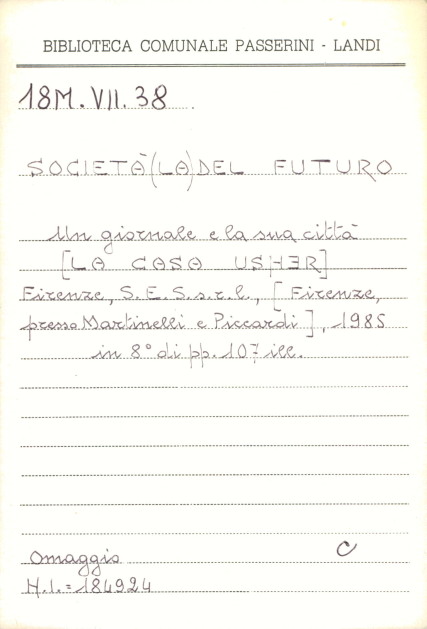 BIBLIOTECA COMUNALE PASSERINI - LANDI
18M.VII.38
SOCIETÀ (LA) DEL FUTURO
Un giornale e la sua città
[LA CASA USHER]
Firenze, S.E.S. s.r.l., [Firenze,
presso Martinelli e Piccardi], 1985
in 8° di pp. 107 ill.
Omaggio C
N.I. = 184924